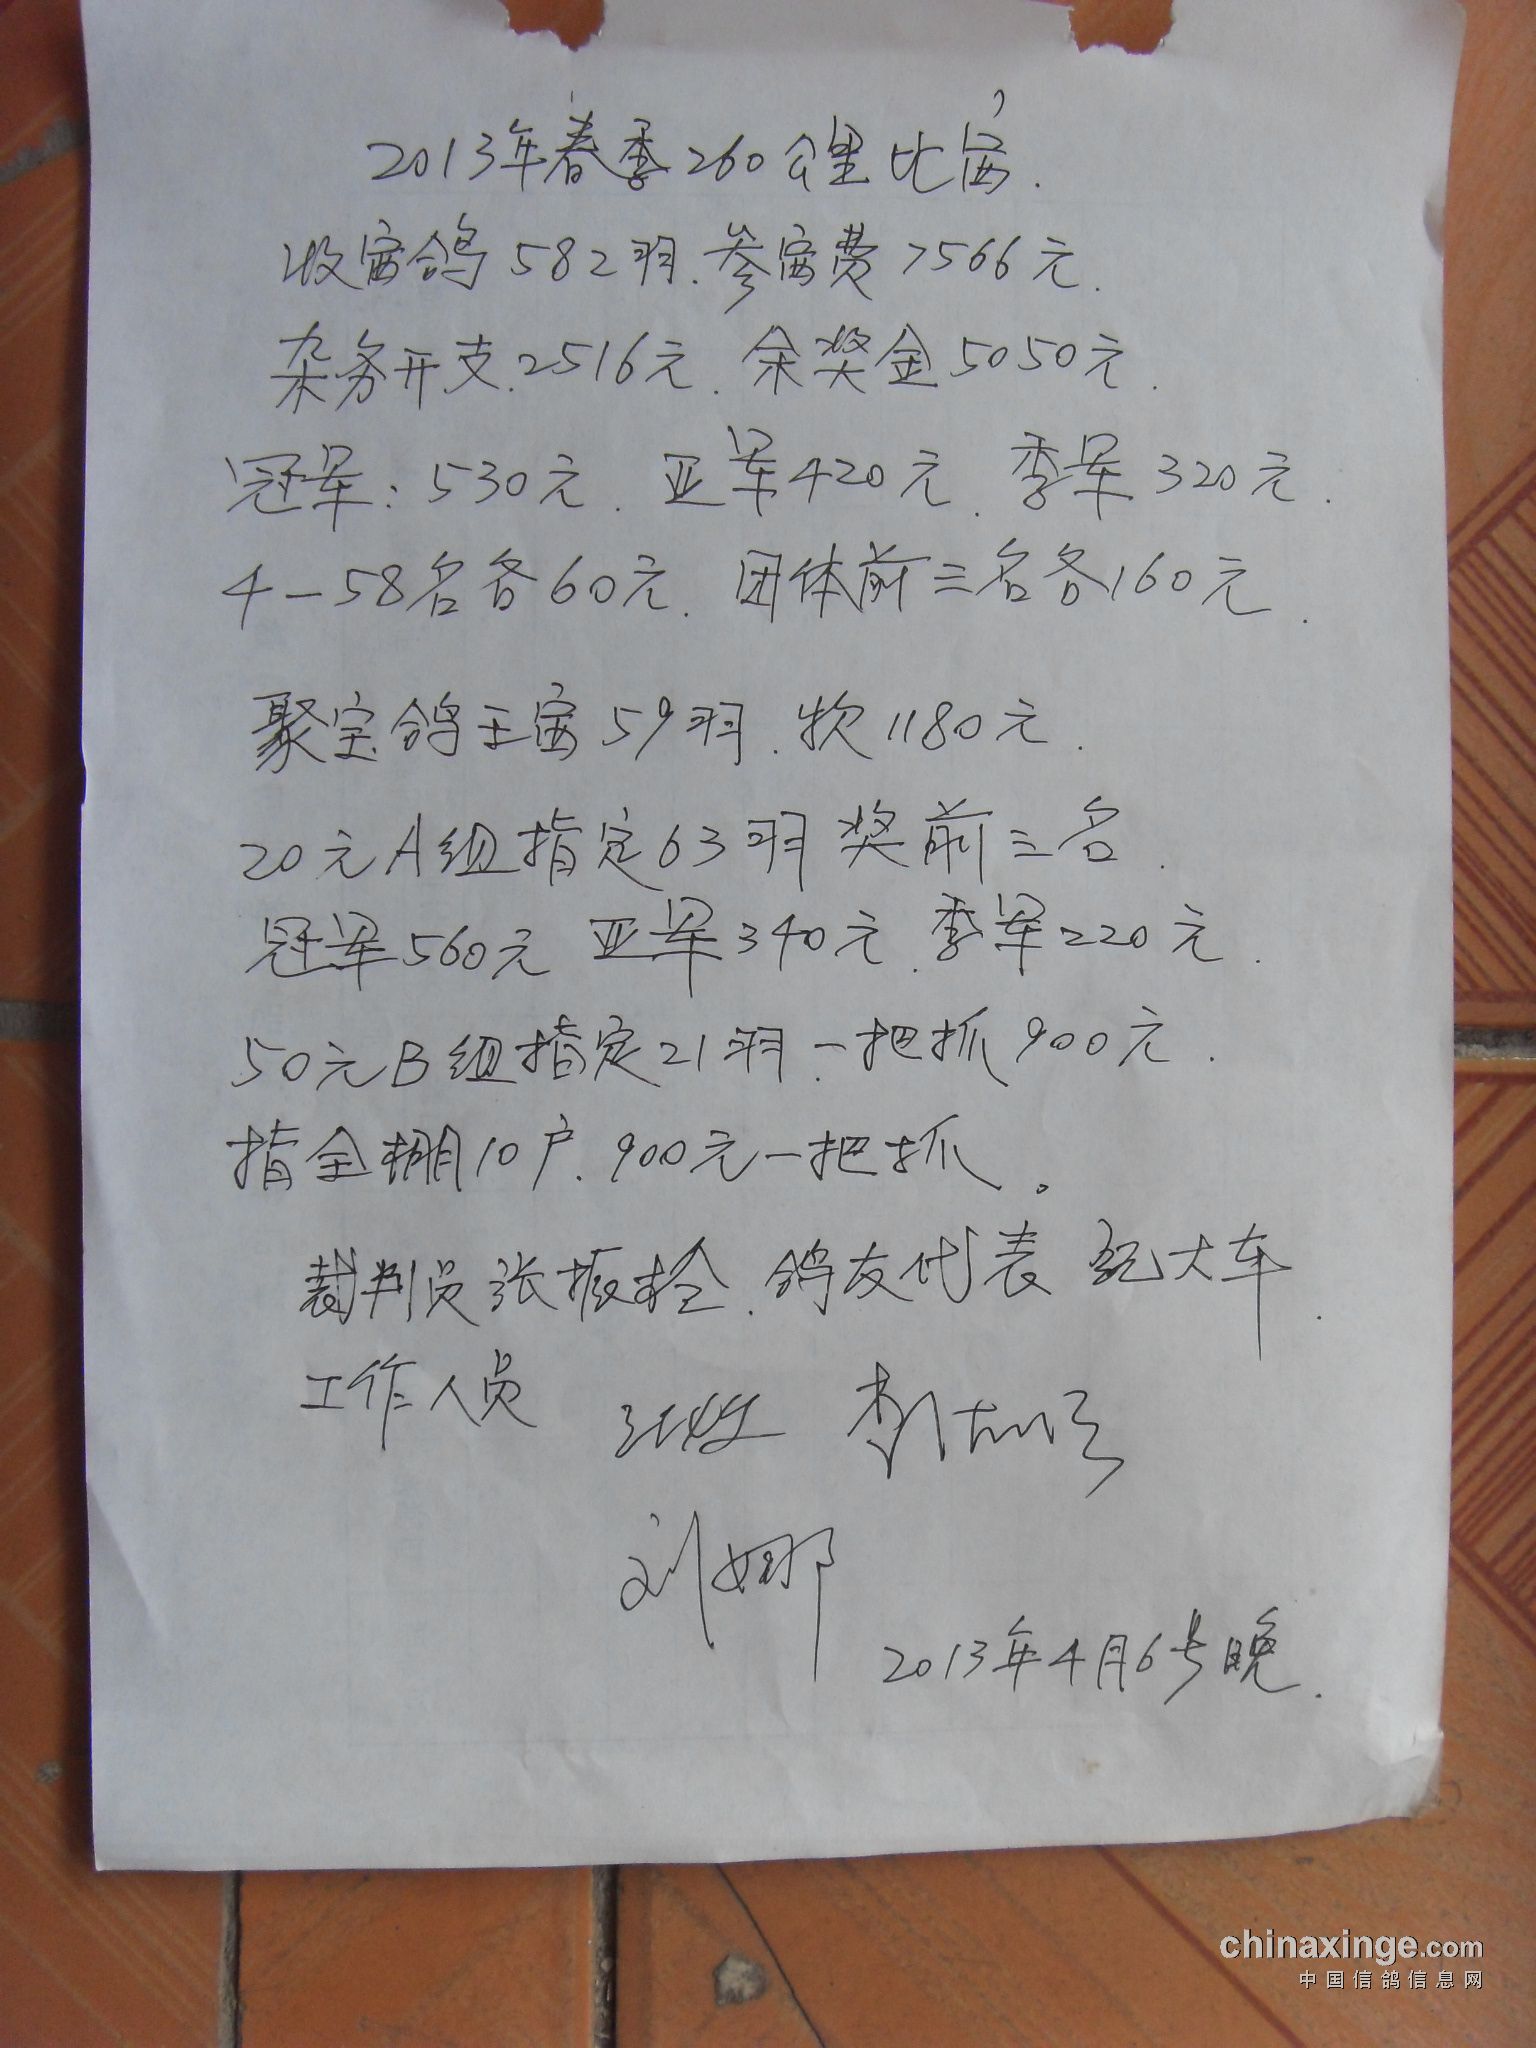 2013年春季260公里比赛.
收赛鸽582羽.参赛费7566元.
杂务开支.2516元.余奖金5050元.
冠军:530元.亚军420元.季军320元.
4-58名各60元.团体前三名各160元.
聚宝鸽王赛59羽.收1180元.
20元A组指定63羽奖前三名.
冠军560元 亚军340元.季军220元.
50元B组指定21羽.一把抓900元.
指全棚10户.900元一把抓。
裁判员张振栓.鸽友代表 纪大车.
工作人员
刘娜
2013年4月6号晚.
chinaxinge.com
中国信鸽信息网